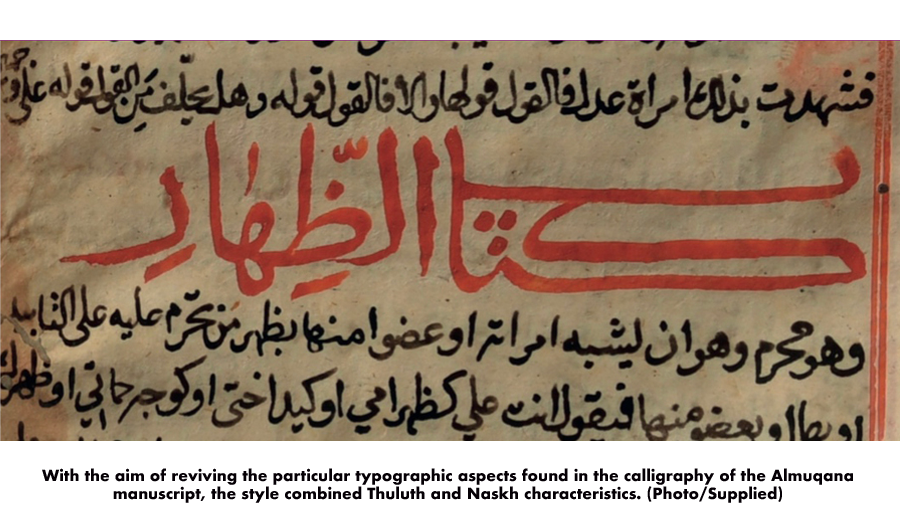 فشهدت بذلك امراة عدل فالقول قولها والا فالقول قوله وهل يحلف من القول قوله على
كتاب الظِّهارِ
وهو محرم وهو ان يشبه امراته او عضوا منها بظهر من تحرم عليه على التابيد
او بعضو منها فيقول انت علي كظهر امي او كيد اختى او كوجه حماتي او ظهرك
With the aim of reviving the particular typographic aspects found in the calligraphy of the Almuqana
manuscript, the style combined Thuluth and Naskh characteristics. (Photo/Supplied)